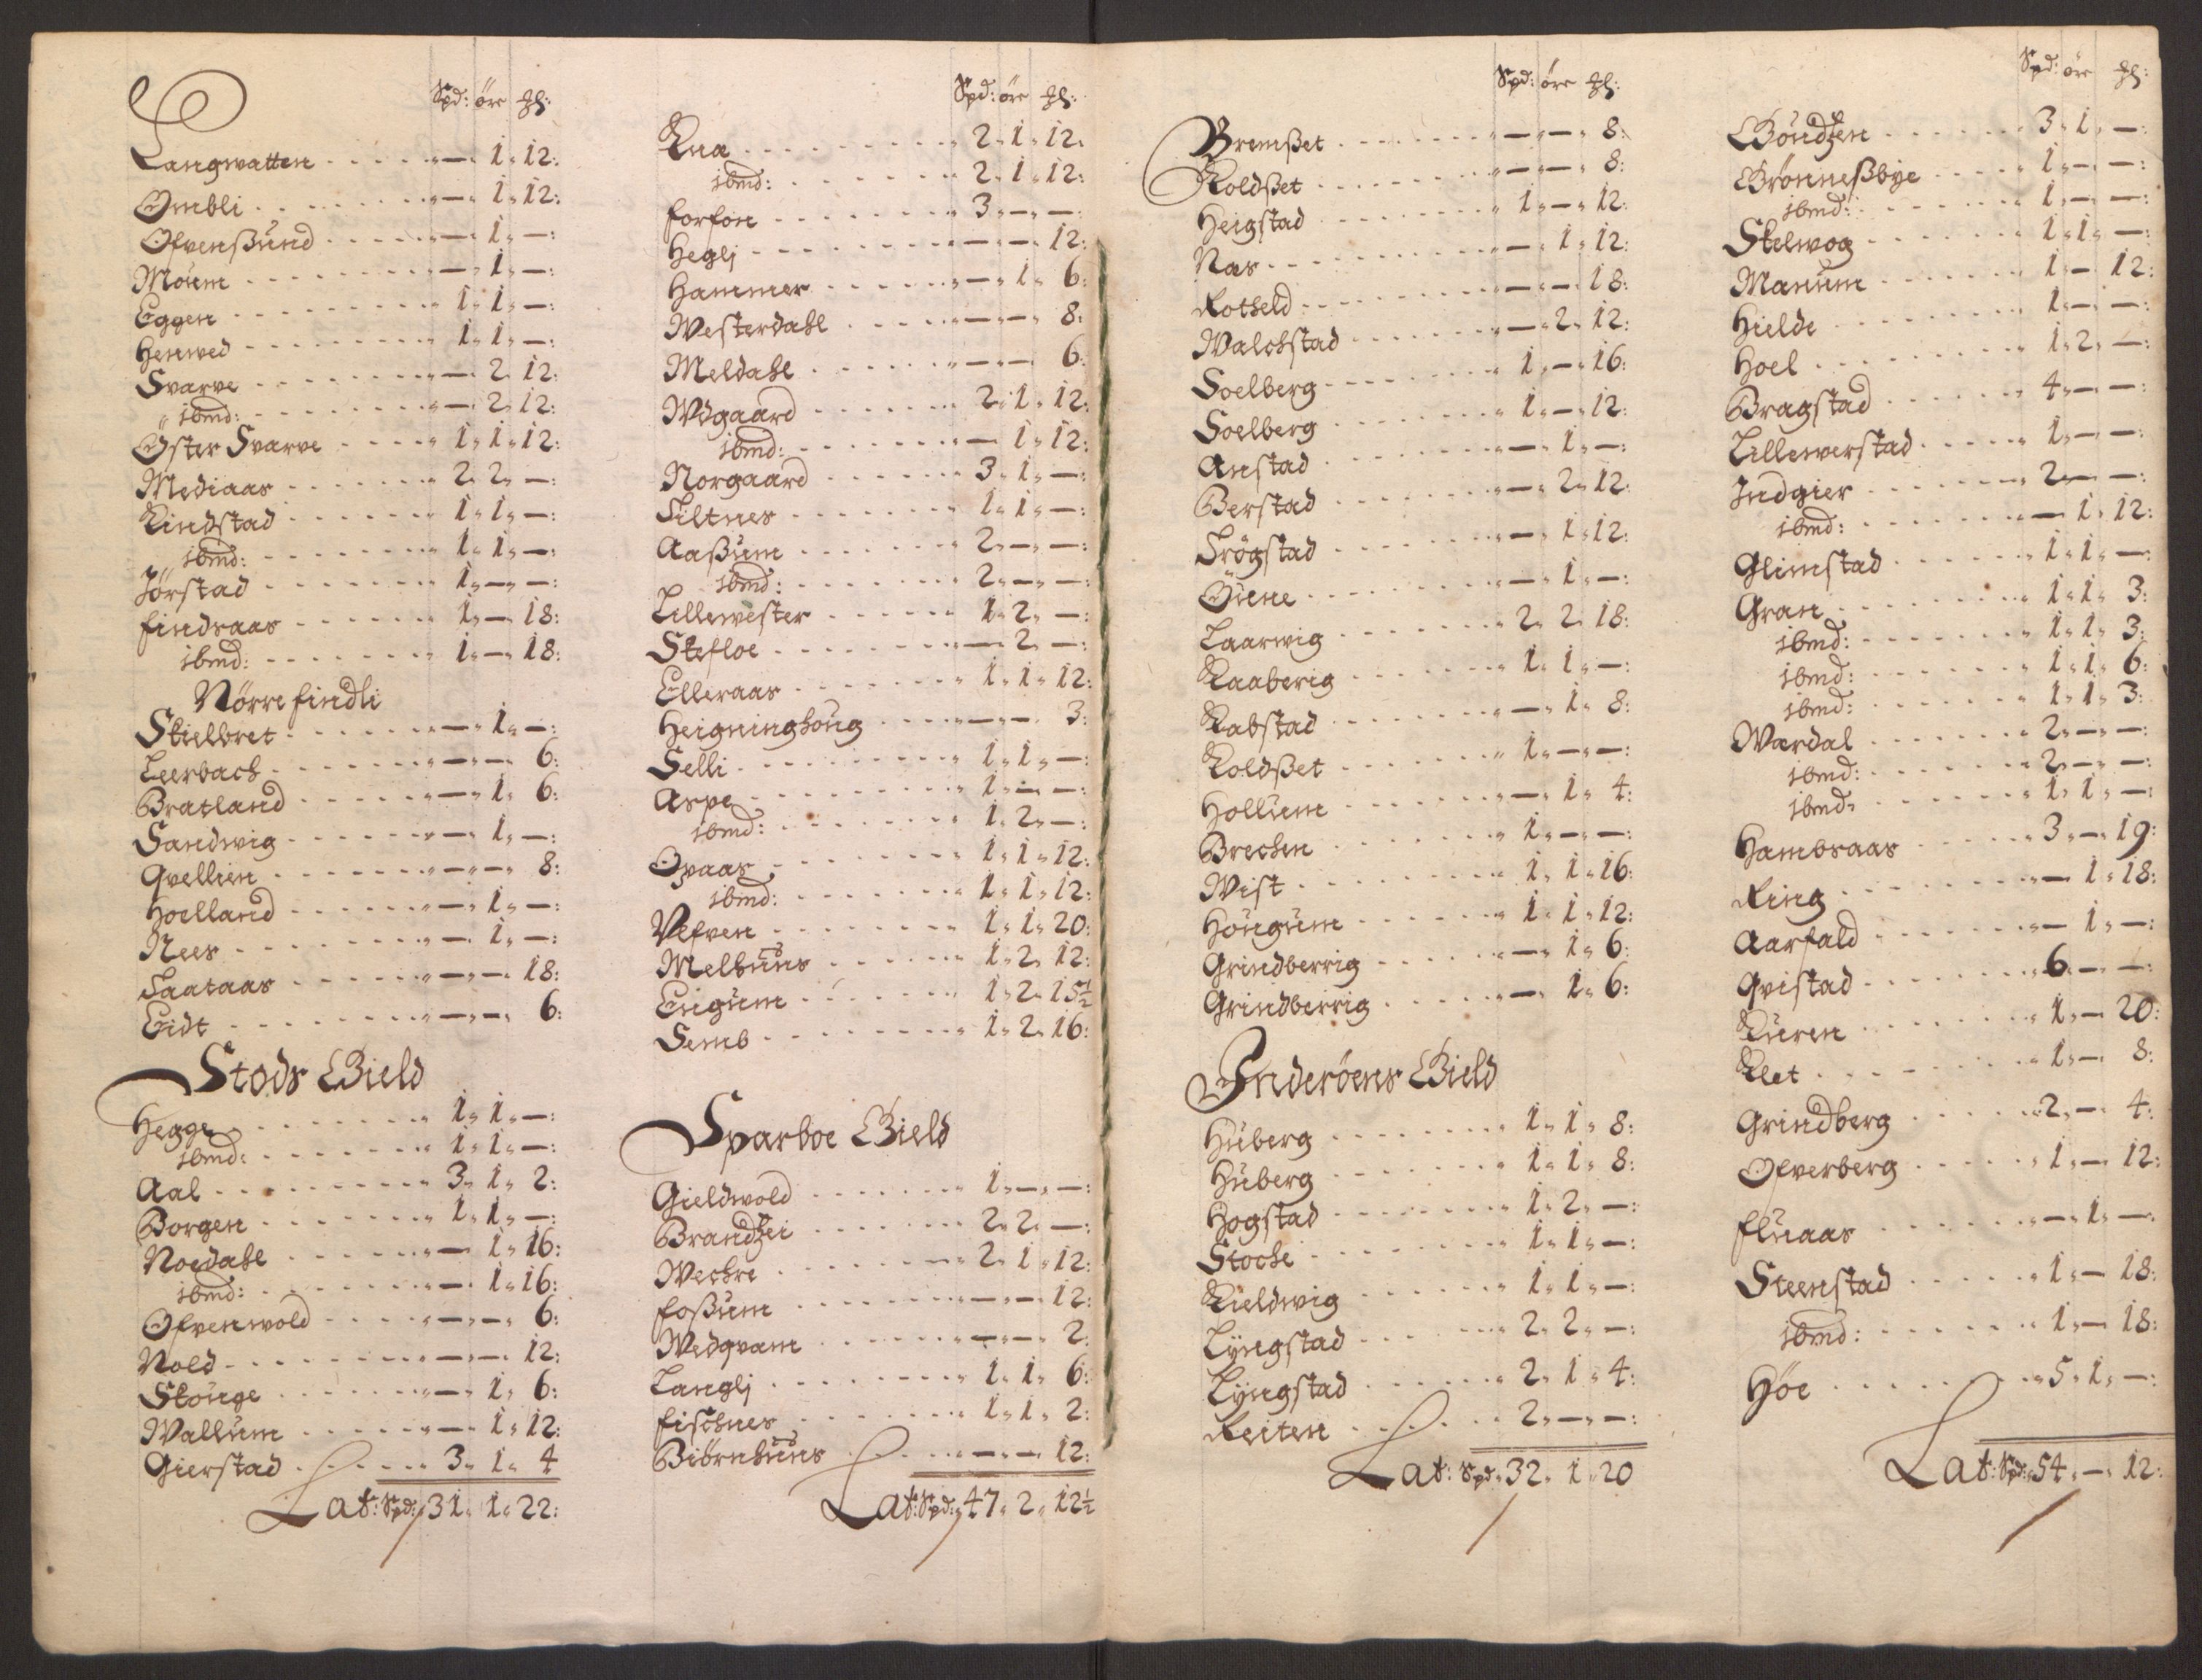 Spd: öre ₰:
Langwatten - - - - - „ — „ 1 „ 12:
Ombli - - - - - „ — „ 1 „ 12:
Ofvenßund - - - - - „ — „ 1 „ — :
Moum - - - - - „ — „ 1 „ — :
Eggen - - - - - „ 1 „ 1 „ — :
Henwed - - - - - „ 1 „ 1 „ — :
Svarve - - - - - „ — „ 2 „ 12:
„ ibmd: - - - - - „ — „ 2 „ 12:
Øster Svarve - - - - „ 1 „ 1 „ 12:
Mediaas - - - - - „ 2 „ 2 „ — :
Kindstad - - - - - „ 1 „ 1 „ — :
ibmd: - - - - - „ 1 „ 1 „ — :
Jørstad - - - - - „ 1 „ — „ — :
Findsaas - - - - - „ 1 „ — „ 18:
ibmd: - - - - - „ 1 „ — „ 18:
Nørre findli
Skielbret - - - - - „ — „ 1 „ — :
Leerbach - - - - - „ — „ — „ 6:
Bratland - - - - - „ — „ 1 „ 6:
Sandwig - - - - - „ — „ 1 „ — :
Qvellien - - - - - „ — „ — „ 8:
Hoelland - - - - - „ — „ 1 „ — :
Nees - - - - - „ — „ 1 „ — :
Saataas - - - - - „ — „ — „ 18:
Eidt - - - - - „ — „ — „ 6:
Stods Gield
Hegge - - - - - „ 1 „ 1 „ — :
ibmd: - - - - - „ 1 „ 1 „ — :
Aal - - - - - „ 3 „ 1 „ 2:
Borgen - - - - - „ 1 „ 1 „ — :
Noedahl - - - - - „ — „ 1 „ 16:
ibmd: - - - - - „ — „ 1 „ 16:
Ofvenwold - - - - „ — „ — „ 6:
Nold - - - - - „ — „ — „ 12:
Skouge - - - - - „ — „ 1 „ 6:
Wallum - - - - - „ — „ 1 „ 12:
Gierstad - - - - - 3 „ 1 „ 4
Lat: Spd: 31 „ 1 „ 22:
Spd: öre ₰:
Kna - - - - - 2 „ 1 „ 12:
ibmd: - - - - - 2 „ 1 „ 12:
Forfon - - - - - 3 „ — „ — :
Heglj - - - - - „ — „ — „ 12:
Hammer - - - - - „ — „ 1 „ 6:
Westerdahl - - - - „ — „ — „ 8:
Meldahl - - - - - „ — „ — „ 6:
Wdgaard - - - - - 2 „ 1 „ 12:
ibmd: - - - - - „ — „ 1 „ 12:
Norgaard - - - - - 3 „ 1 „ — :
Siltnes - - - - - „ 1 „ 1 „ — :
Aaßum - - - - - 2 „ — „ — :
ibmd: - - - - - 2 „ — „ — :
Lillewester - - - - „ 1 „ 2 „ — :
Stefloe - - - - - „ — „ 2 „ — :
Elleraas - - - - - „ 1 „ 1 „ 12:
Heigninghoug - - - „ — „ — „ 3:
Selli - - - - - „ 1 „ 1 „ — :
Aspe - - - - - „ 1 „ — „ — :
ibmd: - - - - - „ 1 „ 2 „ — :
Opaas - - - - - „ 1 „ 1 „ 12:
ibmd: - - - - - „ 1 „ 1 „ 12:
Velven - - - - - „ 1 „ 1 „ 20:
Melhuus - - - - - „ 1 „ 2 „ 12:
Enigum - - - - - „ 1 „ 2 „ 15½
Semb - - - - - „ 1 „ 2 „ 16:
Sparboe Gield
Gieldwold - - - - - „ 1 „ — „ — :
Brandzei - - - - - „ 2 „ 2 „ — :
Wechre - - - - - „ 2 „ 1 „ 12:
Foßum - - - - - „ — „ — „ 12:
Wedqvam - - - - - „ — „ — „ 2:
Langlj - - - - - „ 1 „ 1 „ 6:
Fischnes - - - - - „ 1 „ 1 „ 2:
Biörnhuus - - - - - „ — „ — „ 12:
Lat: Spd: 47 „ 2 „ 12½
Spd: öre ₰:
Bremßet - - - - - „ — „ — „ 8:
Koldßet - - - - - „ — „ — „ 8:
Heigstad - - - - - „ 1 „ — „ 12:
Nas - - - - - „ — „ 1 „ 12:
Rotheld - - - - - „ — „ — „ 18:
Walchstad - - - - - „ — „ 2 „ 12:
Soelberg - - - - - „ 1 „ — „ 16:
Soelberg - - - - - „ 1 „ — „ 12:
Anstad - - - - - „ — „ 1 „ — :
Berstad - - - - - „ — „ 2 „ 12:
Frögstad - - - - - „ — „ 1 „ 12:
Öune - - - - - „ — „ 1 „ — :
Laarwig - - - - - „ 2 „ 2 „ 18:
Kaaberig - - - - - „ 1 „ 1 „ — :
Kabstad - - - - - „ — „ 1 „ 8:
Koldßet - - - - - „ 1 „ — „ — :
Hollum - - - - - „ — „ 1 „ 4:
Brechen - - - - - „ 1 „ — „ — :
Wist - - - - - „ 1 „ 1 „ 16:
Hougum - - - - - „ 1 „ 1 „ 12:
Grindberrig - - - - „ — „ 1 „ 6:
Grindberrig - - - - „ — „ 1 „ 6:
Inderöens Gield
Huberg - - - - - „ 1 „ 1 „ 8:
Huberg - - - - - „ 1 „ 1 „ 8:
Hogstad - - - - - „ 1 „ 2 „ — :
Stoche - - - - - „ 1 „ 1 „ — :
Kieldwig - - - - - „ 1 „ 1 „ — :
Lyngstad - - - - - „ 2 „ 2 „ — :
Lyngstad - - - - - „ 2 „ 1 „ 4:
Reiten - - - - - 2 „ — „ — :
Lat: Spd: 32 „ 1 „ 20
Spd: öre ₰:
Göndzen - - - - - 3 „ 1 „ — :
Grönneßbye - - - - „ 1 „ — „ — :
ibmd: - - - - - „ 1 „ — „ — :
Skelwog - - - - - „ 1 „ 1 „ — :
Manum - - - - - „ 1 „ — „ 12:
Hielde - - - - - „ 1 „ — „ — :
Hoel - - - - - „ 1 „ 2 „ — :
Bragstad - - - - - „ 4 „ — „ — :
Lillewerstad - - - - „ 1 „ — „ — :
Indgier - - - - - „ 2 „ — „ — :
ibmd: - - - - - „ — „ 1 „ 12:
Glimstad - - - - - „ 1 „ 1 „ — :
Gran - - - - - „ 1 „ 1 „ 3:
ibmd: - - - - - „ 1 „ 1 „ 3:
ibmd: - - - - - „ 1 „ 1 „ 6:
ibmd: - - - - - „ 1 „ 1 „ 3:
Wardal - - - - - „ 2 „ — „ — :
ibmd: - - - - - „ 2 „ — „ — :
ibmd: - - - - - „ 1 „ 1 „ — :
Hambraas - - - - - „ 3 „ — „ 19:
Ring - - - - - „ — „ 1 „ 18:
Aarfald - - - - - „ — „ 1 „ — :
Qvistad - - - - - „ 6 „ — „ — :
Kuren - - - - - „ 1 „ — „ 20:
Klet - - - - - „ 1 „ — „ 8:
Grindberg - - - - - „ 2 „ — „ 4:
Ofverberg - - - - - „ 1 „ — „ 12:
Fluaas - - - - - „ — „ 1 „ — :
Steenstad - - - - - „ 1 „ — „ 18:
ibmd: - - - - - „ 1 „ — „ 18:
Höe - - - - - „ 5 „ 1 „ — :
Lat: Spd: 54 „ — „ 12: